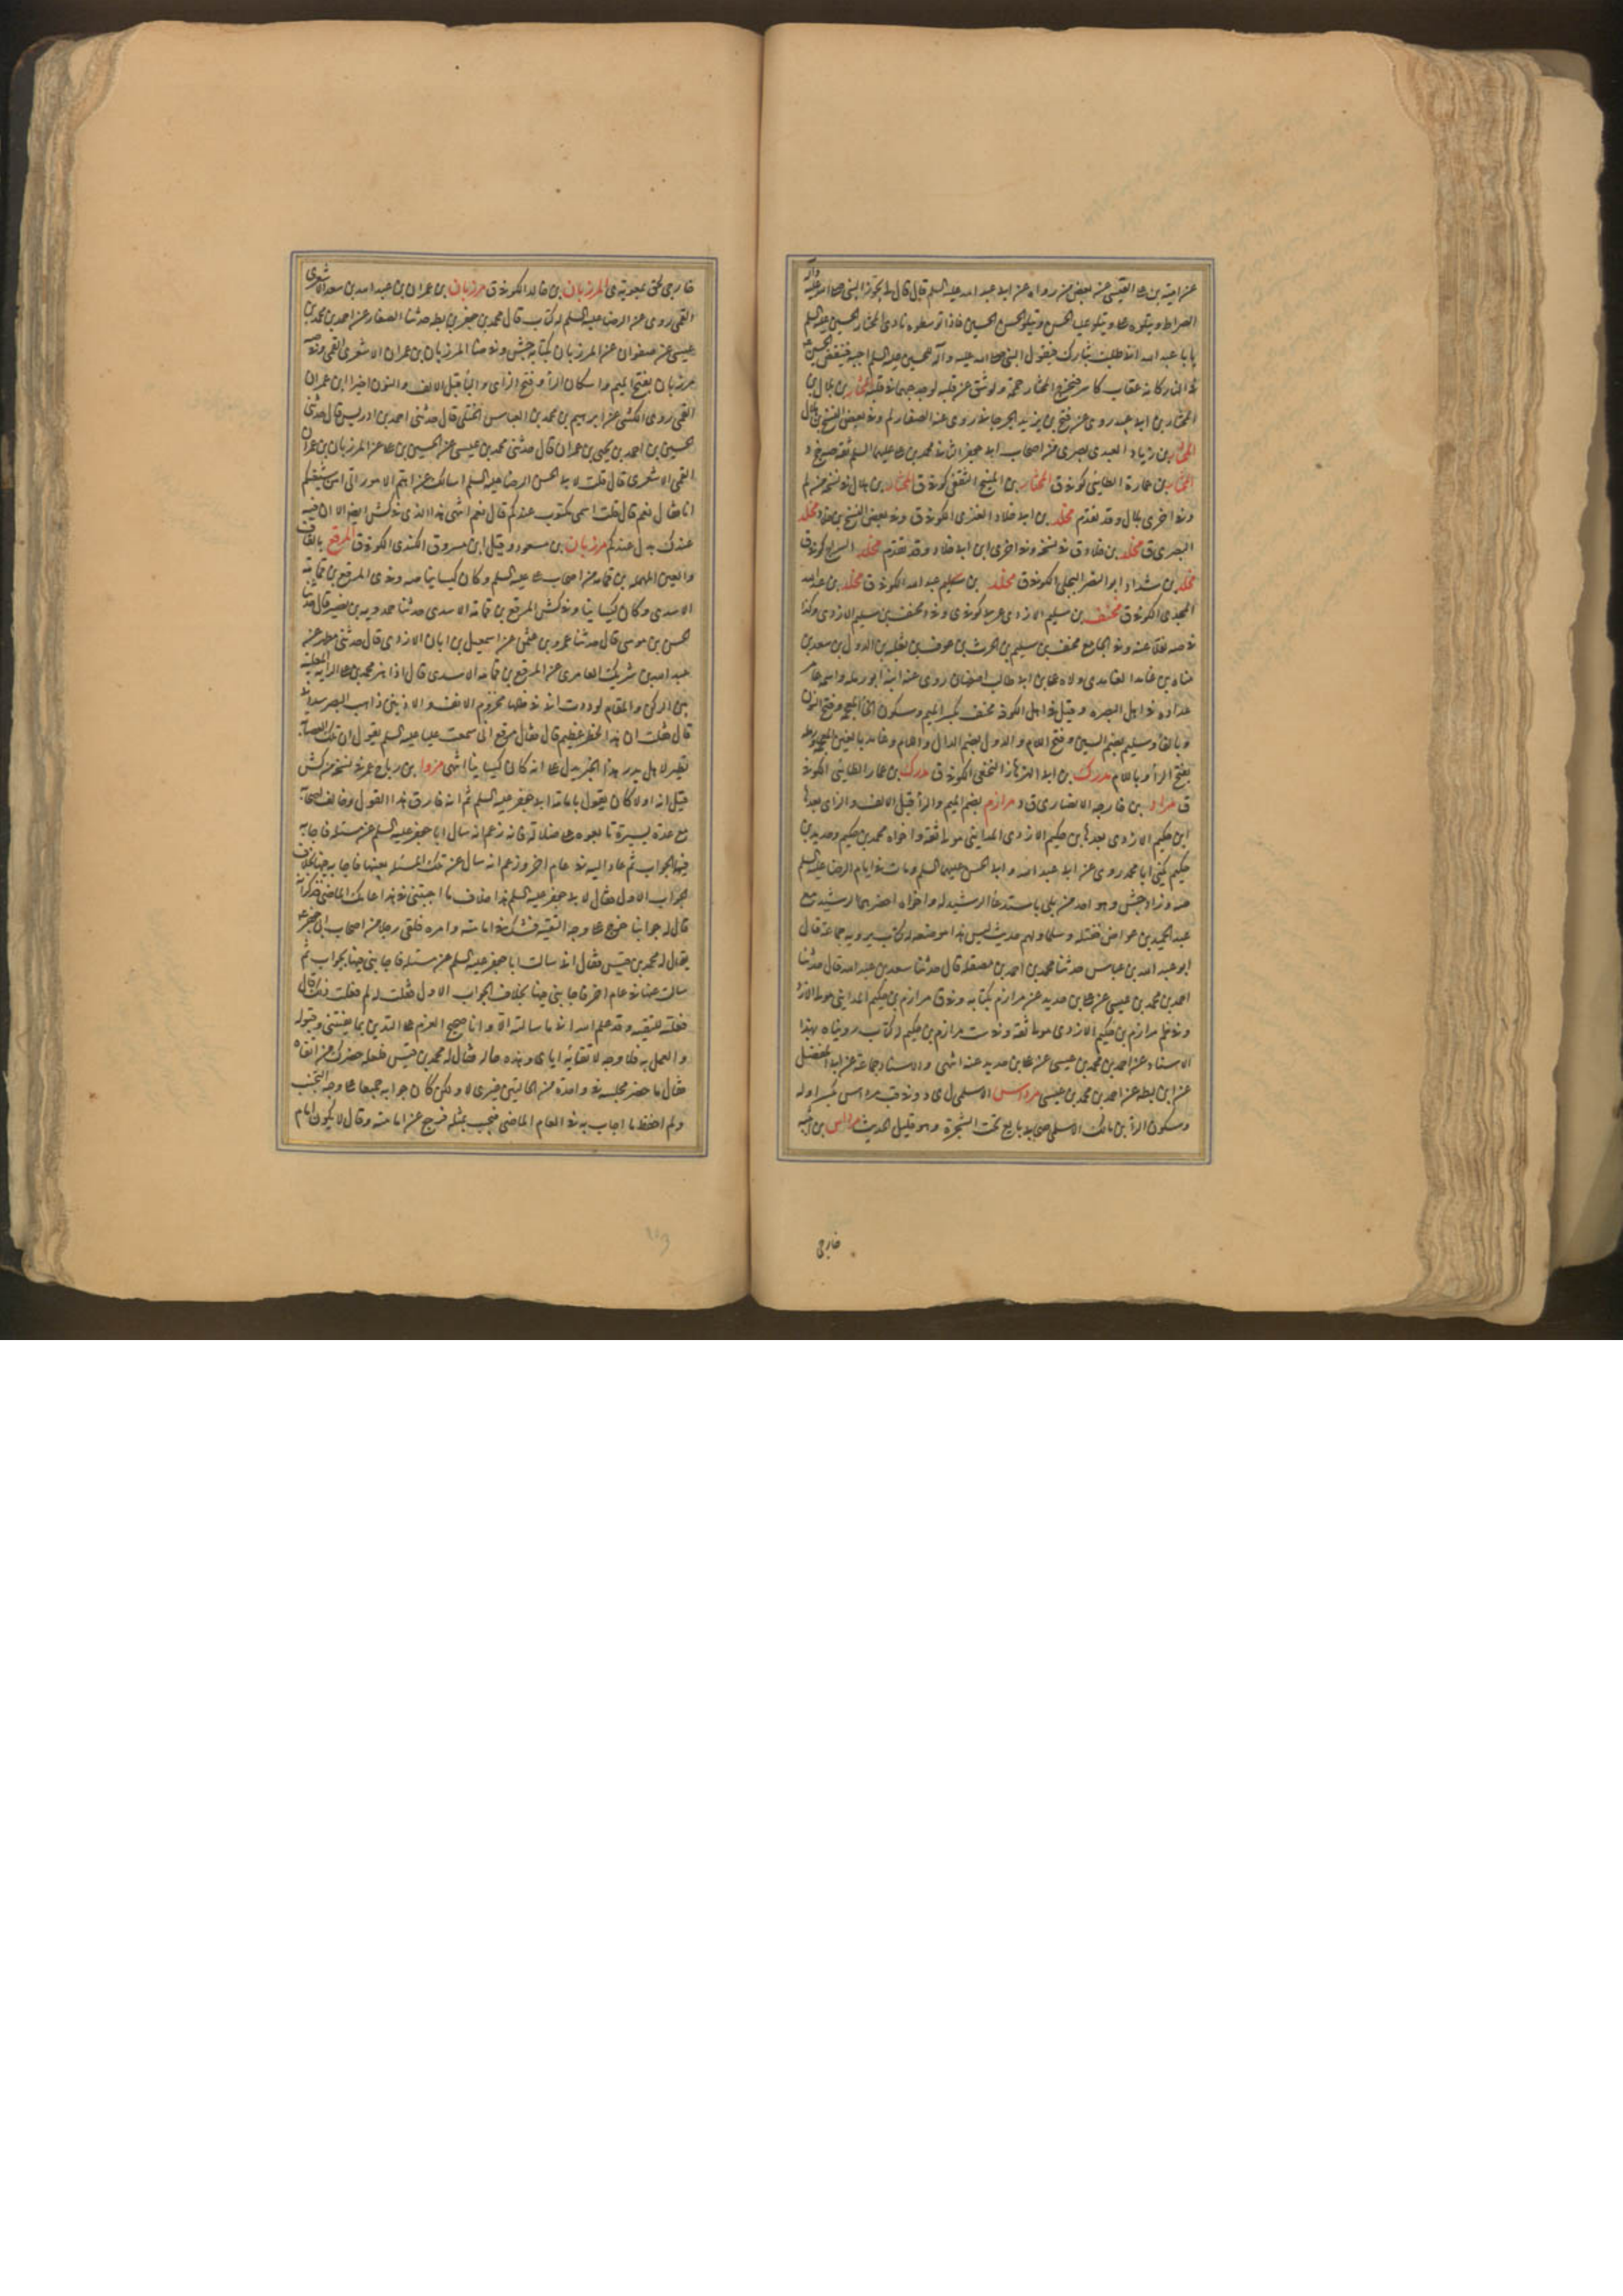 عن امية بن على القيسى عن بعض من رواه عن ابى عبد الله عليه السلم قال قال لى يجوز النبى صلى الله عليه وآله
الصراط ويتلوه على ويتلو عليا الحسن ويتلو الحسن الحسين فاذا توسطوه نادى المختار الحسين عليه السلم
يا ابا عبد الله انى طلبت بثارك فيقول النبى صلى الله عليه وآله للحسين عليه السلم اجبه فينقض الحسين
فى النار كانه عقاب كاسر فيخرج المختار حممة ولو شق عن قلبه لوجد حبهما فى قلبه المختار بن بلال بن
المختار بن ابى عبيد روى عن فتح بن يزيد الجرجانى روى عنه الصفار لم وفى بعض النسخ بن هلال
المختار بن زياد العبدى بصرى من اصحاب ابى جعفر الثانى محمد بن على عليهما السلم ثقة
المختار بن عمارة الطائى كوفى ق المختار بن المنيح الثقفى كوفى ق المختار بن هلال فى نسخة من لم
وفى اخرى بلال وقد تقدم مخلد بن ابى خلاد العنزى الكوفى ق وفى بعض النسخ بن مخلد
البصرى ق مخلد بن خلاد ق فى نسخة وفى اخرى ابن ابى خلاد وقد تقدم مخلد السراج كوفى ق
مخلد بن شداد ابو النضر البجلى الكوفى ق مخلد بن سليم عبد الله الكوفى ق مخلد بن عبد الله
الكوفى ق مخنف بن سليم الازدى عربى كوفى ى وفى د مخنف بن سليم الازدى وكذا
فى صه نقلا عنه وفى الجامع مخنف بن سليم بن الحرث بن عوف بن ثعلبة بن الدول بن سعد بن
مناة بن غامد الغامدى ولاه على بن ابى طالب اصفهان روى عنه ابنه ابو رملة واسمه عامر
عداده فى اهل البصرة وقيل فى اهل الكوفة مخنف بكسر الميم وسكون الخاء المعجمة وفتح النون
وبالفاء وسليم بضم السين وفتح اللام والدول بضم الدال واللام وغامد بالغين المعجمة
بفتح الراء وباللام مدرك بن ابى الهزهاز النخعى الكوفى ق مدرك بن عمار الطائى الكوفى
ق مرار بن خارجة الانصارى ق د مرازم بضم الميم والراء قبل الالف والزاى بعدها
ابن حكيم الازدى بعدها بن حكيم الازدى المداينى مولى ثقة واخواه محمد بن حكيم وحديد بن
حكيم يكنى ابا محمد روى عن ابى عبد الله وابى الحسن عليهما السلم ومات فى ايام الرضا عليه السلم
صه وزاد جش وهو احد من بلى باستدعاء الرشيد له واخواه احضرهما الرشيد مع
عبد الحميد بن عواض فقتله وسلما ولهم حديث ليس هذا موضعه له كتاب يرويه جماعة قال
ابو عبد الله بن عياش حدثنا محمد بن احمد بن مصقلة قال حدثنا سعد بن عبد الله قال حدثنا
احمد بن محمد بن عيسى عن على بن حديد عن مرازم بكتابه وفى ق مرازم بن حكيم المداينى مولى الازد
وفى ظم مرازم بن حكيم الازدى مولى ثقة وفى ست مرازم بن حكيم له كتاب رويناه بهذا
الاسناد عن احمد بن محمد بن عيسى عن على بن حديد عنه انتهى والاسناد جماعة عن ابى المفضل
عن ابن بطة عن احمد بن محمد بن عيسى مرداس الاسلمى ل ى د وفى قب مرداس بكسر اوله
وسكون الراء بن مالك الاسلمى صحابى بايع تحت الشجرة وهو قليل الحديث مرداس بن امية
خارجى
خارجى لحق بمعوية ى المرزبان بن خالد الكوفى ق مرزبان بن عمران بن عبد الله بن سعد الاشعرى
القمى روى عن الرضا عليه السلم له كتاب قال محمد بن جعفر بن بطة حدثنا الصفار عن احمد بن محمد بن
عيسى عن صفوان عن المرزبان بكتابه جش وفى ضا المرزبان بن عمران الاشعرى القمى وفى صه
مرزبان بفتح الميم واسكان الراء وفتح الزاى والباء قبل الالف والنون اخيرا ابن عمران
القمى روى الكشى عن ابرهيم بن محمد بن العباس الختلى قال حدثنى احمد بن ادريس قال حدثنى
الحسين بن احمد بن يحيى بن عمران قال حدثنى محمد بن عيسى عن الحسين بن على عن المرزبان بن عمران
القمى الاشعرى قال قلت لابى الحسن الرضا عليه السلم اسالك عن اهم الامور الى امن شيعتكم
انا فقال نعم قال قلت اسمى مكتوب عندكم قال نعم انتهى هذا الذى فى كش ايضا الا ان فيه
عندك بدل عندكم مرزبان بن مسعود وقيل ابن مسروق الكندى الكوفى ق المرقع بالقاف
والعين المهملة بن قمامة من اصحاب على عليه السلم وكان كيسانيا صه وفى ى المرقع بن قمامة
الاسدى وكان كيسانيا وفى كش المرقع بن قمامة الاسدى حدثنا حمدويه بن نصير قال حدثنا
الحسن بن موسى قال حدثنا عمرو بن عثمن عن اسمعيل بن ابان الازدى قال حدثنى مطر عن
عبد الله بن شريك العامرى عن المرقع بن قمامة الاسدى قال اذا هز محمد بن على الراية المعلبة
بين الركن والمقام لوددت انى فى محزوم الانف والاذنين ذاهب البصر
قال فقلت ان هذا لخطر عظيم قال فقال مرقع انى سمعت عليا عليه السلم يقول ان تلك العصابة
نظير لاهل بدر هذا الخبر يدل على انه كان كيسانيا انتهى مروا بن رياح عمر فى نسخة من كش
قيل انه اولا كان يقول بامامة ابى جعفر عليه السلم ثم انه فارق هذا القول وخالف اصحابه
مع عدة يسيرة تابعوه على ضلالته فانه زعم انه سال ابا جعفر عليه السلم عن مسئلة فاجابه
فيها بجواب ثم عاد اليه فى عام اخر وزعم انه سال عن تلك المسئلة بعينها فاجابه فيها بخلاف
الجواب الاول فقال لابى جعفر عليه السلم هذا خلاف ما اجبتنى فى هذا عامك الماضى فذكر انه
قال له جوابنا خرج على وجه التقية فشك فى امامته وامره فلقى رجلا من اصحاب ابى جعفر ع
يقال له محمد بن قيس فقال انى سالت ابا جعفر عليه السلم عن مسئلة فاجابنى فيها بجواب ثم
سالت عنها فى عام اخر فاجابنى فيها بخلاف الجواب الاول فقلت له لم فعلت ذلك قال
فعلته للتقية وقد علم الله انى ما سالته الا وانا صحيح العزم على التدين بما يفتينى وقبوله
والعمل به فلا وجه لاتقائه اياى وهذه حاله فقال له محمد بن قيس فلعله حضرك من اتقاه
فقال ما حضر مجلسه فى واحدة من الحالتين غيرى لا ولكن كان جوابه جميعا على وجه التخبت
ولم يحفظ ما اجاب به فى العام الماضى فيجيب بمثله فرجع عن امامته وقال لا يكون امام